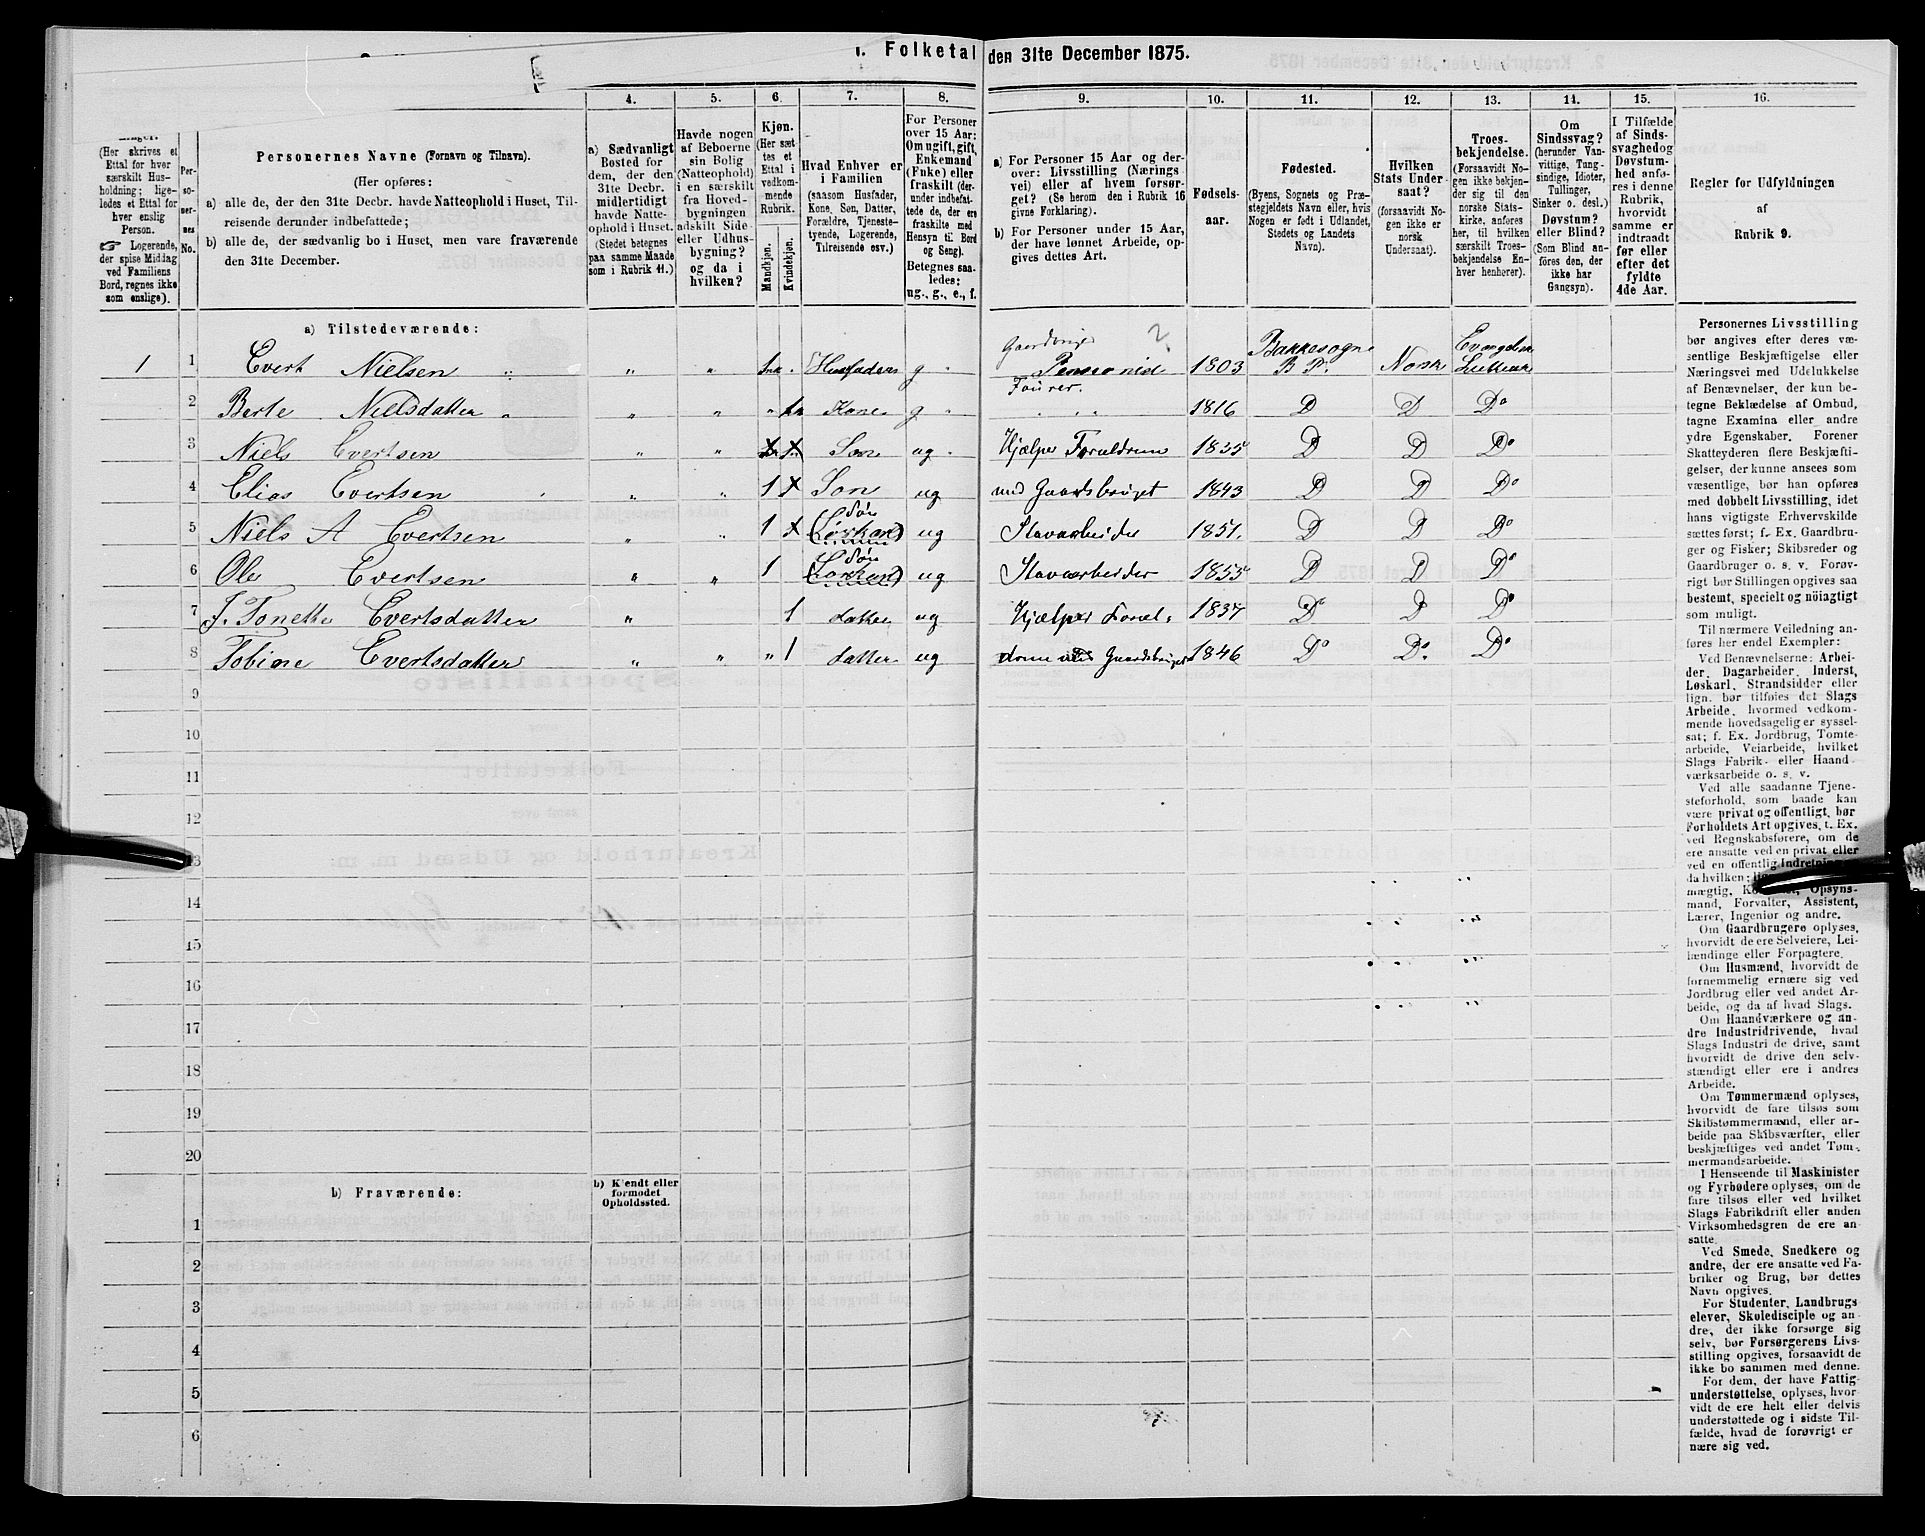 1. Folketal den 31te December 1875.
4. 5. 6. 7. 8. 9. 10. 11. 12. 13. 14. 15. 16.
(Her skrives et
Ettal for hver
særskilt Hus-
holdning; lige-
ledes et Ettal for
hver enslig
Person.
☞ Logerende,
der spise Middag
ved Familiens
Bord, regnes ikke
som enslige).
Per-
so-
ner-
nes
No.
Personernes Navne (Fornavn og Tilnavn).
(Her opføres:
a) alle de, der den 31te Decbr. havde Natteophold i Huset, Til-
reisende derunder indbefattede;
b) alle de, der sædvanlig bo i Huset, men vare fraværende
den 31te December.
a) Sædvanligt
Bosted for
dem, der den
31te Decbr.
midlertidigt
havde Natte-
ophold i Huset.
(Stedet betegnes
paa samme Maade
som i Rubrik 11.)
Havde nogen
af Beboerne
sin Bolig
(Natteophold)
i en særskilt
fra Hoved-
bygningen
adskilt Side-
eller Udhus-
bygning?
og da i
hvilken?
Kjøn.
(Her sæt-
tes et
Ettal i
vedkom-
mende
Rubrik.
Mandkjøn.
Kvindekjøn.
Hvad Enhver er
i Familien
(saasom Husfader,
Kone, Søn, Datter,
Forældre, Tjeneste-
tyende, Logerende,
Tilreisende osv.)
For Personer
over 15 Aar:
Om ugift, gift,
Enkemand
(Enke) eller
fraskilt (der-
under indbefat-
tede de, der ere
fraskilte med
Hensyn til Bord
og Seng).
Betegnes saa-
ledes:
ug., g., e., f.
a) For Personer 15 Aar og der-
over: Livsstilling (Nærings-
vei) eller af hvem forsør-
get? (Se herom den i Rubrik 16
givne Forklaring).
b) For Personer under 15 Aar,
der have lønnet Arbeide, op-
gives dettes Art.
Fødsels-
aar.
Fødested.
(Byens, Sognets og Præ-
stegjeldets Navn eller, hvis
Nogen er født i Udlandet,
Stedets og Landets
Navn).
Hvilken
Stats Under-
saat?
(forsaavidt No-
gen ikke er
norsk
Undersaat).
Troes-
bekjendelse.
(Forsaavidt No-
gen ikke bekjen-
der sig til den
norske Stats-
kirke, anføres
her, til hvilken
særskilt Troes-
bekjendelse En-
hver henhører).
Om
Sindssvag?
(herunder Van-
vittige, Tung-
sindige, Idioter,
Tullinger,
Sinker o. desl.)
Døvstum?
eller Blind?
(Som Blind an-
føres den, der
ikke har
Gangsyn).
I Tilfælde
af Sinds-
svaghed og
Døvstum-
hed anfø-
res i denne
Rubrik,
hvorvidt
samme er
indtraadt
før eller
efter det
fyldte
4de Aar.
Regler for Udfyldningen
af
Rubrik 9.
a) Tilstedeværende:
1 1 Evert Nielsen Husfader g Gaardbruger Pensionid Fourer ? 1803 Bakkesogn B P. Norsk Evangelisk Luthersk
2 Berte Nielsdatter Kone g 1816 D D Do
3 Niels Evertsen Søn ug Hjælper Foreldrene 1835 D D Do
4 Elias Evertsen 1 Søn ug med Gaardsbruget 1843 D D Do
5 Niels A Evertsen 1 Søn (Løskarl) ug Stavarbeider 1851. D D Do
6 Ole Evertsen 1 Søn (Løskarl) ug Stavarbeider 1855 D D Do
7 J. Tonette Evertsdatter 1 datter ug Hjælper Forel- 1837 Do D Do
8 Tobine Evertsdatter 1 datter ug drene med Gaardsbruget 1846 Do Do. Do
9
10
11
12
13
14
15
16
17
18
19
20
b) Fraværende:
b) Kjendt eller
formodet
Opholdssted.
1
2
3
4
5
6
Personernes Livsstilling
bør angives efter deres væ-
sentlige Beskjæftigelse eller
Næringsvei med Udelukkelse
af Benævnelser, der kun be-
tegne Beklædelse af Ombud,
tagne Examina eller andre
ydre Egenskaber. Forener
Skatteyderen flere Beskjæfti-
gelser, der kunne ansees som
væsentlige, bør han opføres
med dobbelt Livsstilling, idet
hans vigtigste Erhvervskilde
sættes først; f. Ex. Gaardbru-
ger og Fisker; Skibsreder og
Gaardbruger o. s. v. Forøv-
rigt bør Stillingen opgives saa
bestemt, specielt og nöiagtigt
som muligt.
Til nærmere Veiledning an-
føres her endel Exempler:
Ved Benævnelserne: Arbei-
der, Dagarbeider, Inderst,
Løskarl, Strandsidder eller
lign. bør tilføies det Slags
Arbeide, hvormed vedkom-
mende hovedsagelig er syssel-
sat; f. Ex. Jordbrug, Tomte-
arbeide, Veiarbeide, hvilket
Slags Fabrik- eller Haand-
værksarbeide o. s. v.
Ved alle saadanne Tjene-
steforhold, som baade kan
være privat og offentligt, bør
Forholdets Art opgives, t. Ex.
ved Regnskabsførere, om de
ere ansatte ved en privat eller
ved en offentlig Indretning
da hvilken;
mægtig, Opsyns-
mand, Forvalter, Assistent,
Lærer, Ingeniør og andre.
Om Gaardbrugere oplyses,
hvorvidt de ere Selveiere, Lei-
lændinge eller Forpagtere.
Om Husmænd, hvorvidt de
fornemmelig ernære sig ved
Jordbrug eller ved andet Ar-
beide, og da af hvad Slags.
Om Haandværkere og an-
dre Industridrivende, hvad
Slags Industri de drive, samt
hvorvidt de drive den selv-
stændigt eller ere i andres
Arbeide.
Om Tømmermænd oplyses,
hvorvidt de fare tilsøs som
Skibstømmermænd, eller ar-
beide paa Skibsværfter, eller
beskjæftiges ved andet Tøm-
mermandsarbeide.
I Henseende til Maskinister
og Fyrbødere oplyses, om de
fare tilsøs eller ved hvilket
Slags Fabrikdrift eller anden
Virksomhedsgren de ere an-
satte.
Ved Smede, Snedkere og
andre, der ere ansatte ved Fa-
briker og Brug, bør dettes
Navn opgives.
For Studenter, Landbrugs-
elever, Skoledisciple og an-
dre, der ikke forsørge sig
selv, bør Forsørgerens Livs-
stilling opgives, forsaavidt de
ikke bo sammen med denne.
For dem, der have Fattig-
understøttelse, oplyses, hvor-
vidt de ere helt eller delvis
understøttede og i sidste Til-
fælde, hvad de forøvrigt er-
nære sig ved.